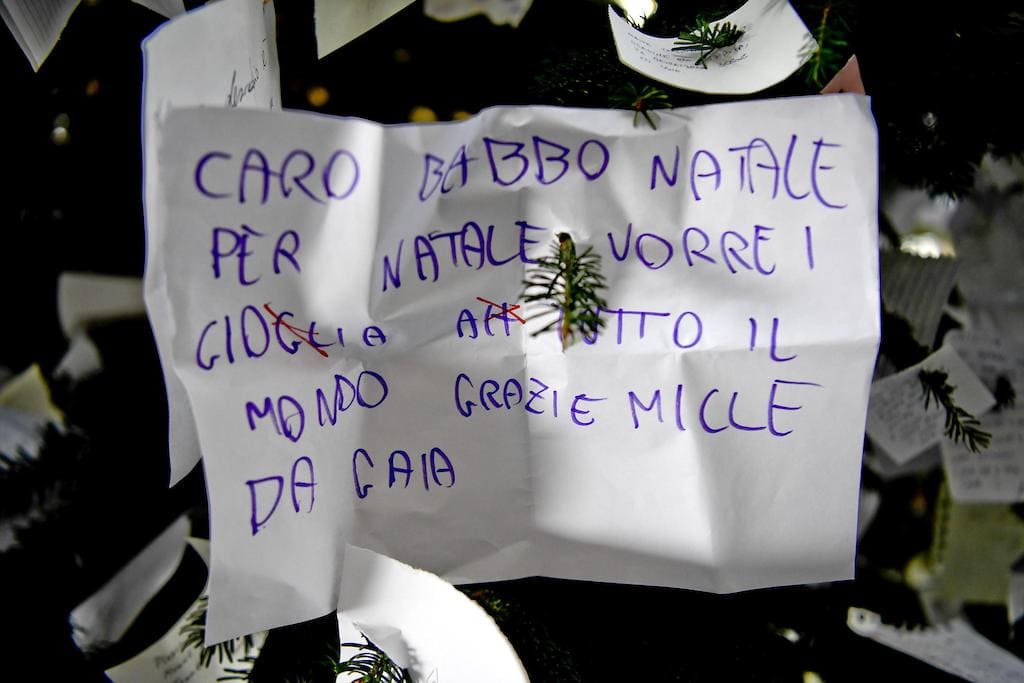 CARO BABBO NATALE
PÈR NATALE VORREI
GIOGLIA AH TUTTO IL
MONDO GRAZIE MICLLE
DA GAIA